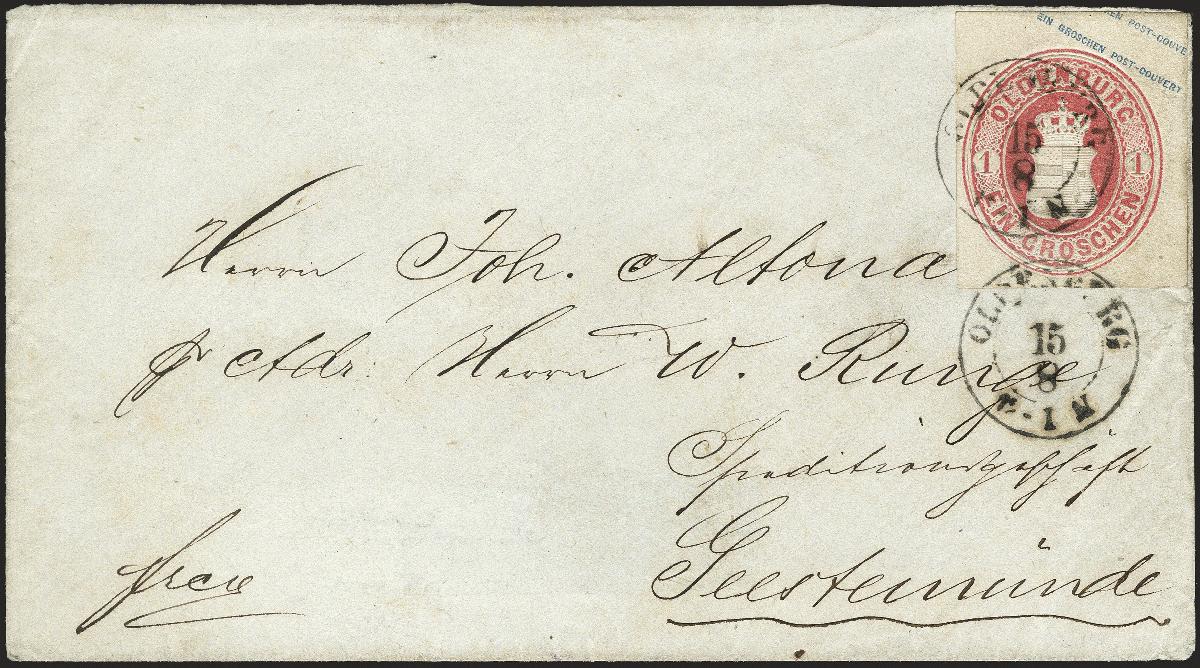 EIN GROSCHEN POST-COUVERT
EIN GROSCHEN POST-COUVE
OLDENBURG
1 1
EIN GROSCHEN
OLDENBURG
15
8
1 N
Herrn Joh. Altona
pr Adr. Herrn W. Runge
OLDENBURG
15
8
2-1 N
Speditionsgeschäft
Geestemünde
free